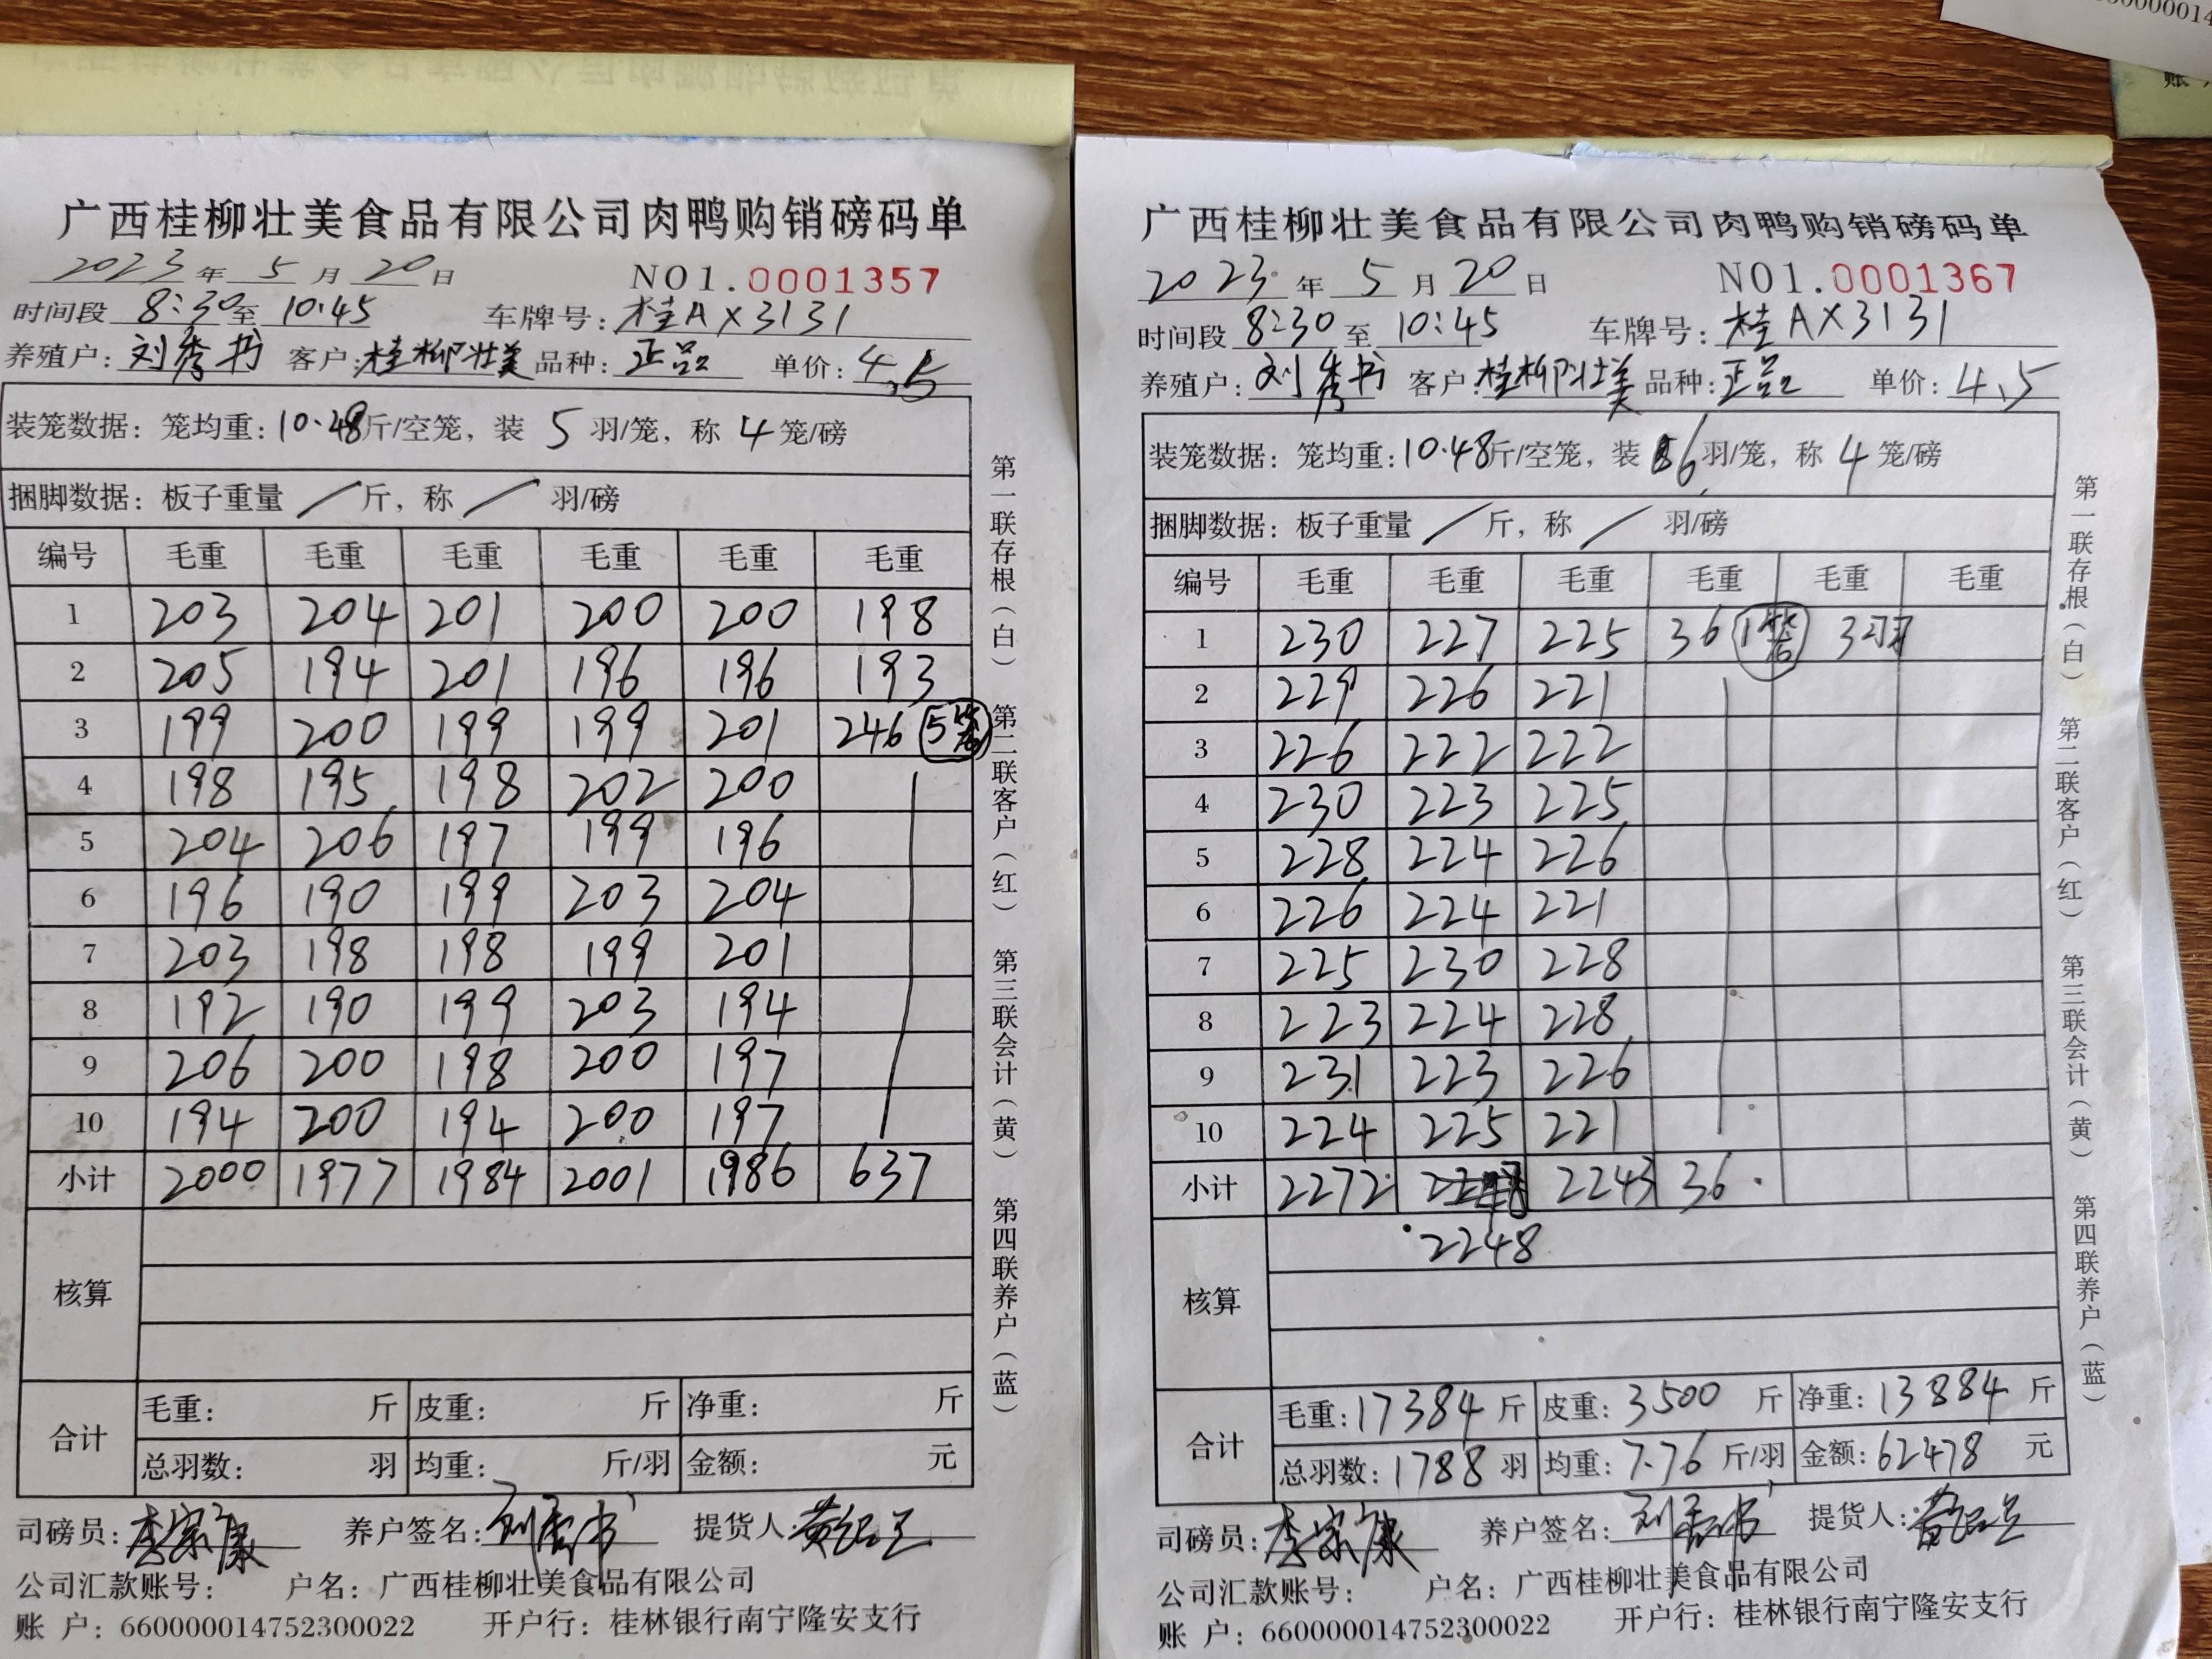 广西桂柳壮美食品有限公司肉鸭购销磅码单
2023年 5月 20日 NO1.0001357
时间段 8:30至 10:45 车牌号: 桂AX3131
养殖户: 刘秀书 客户: 桂柳壮美 品种: 正品 单价: 4.5
装笼数据: 笼均重: 10.48斤/空笼, 装 5 羽/笼, 称 4 笼/磅
捆脚数据: 板子重量 / 斤, 称 / 羽/磅
编号 毛重 毛重 毛重 毛重 毛重 毛重
1 203 204 201 200 200 198
2 205 194 201 196 196 193
3 199 200 199 199 201 246 5笼
4 198 195 198 202 200
5 204 206 197 199 196
6 196 190 199 203 204
7 203 198 198 199 201
8 192 190 199 203 194
9 206 200 198 200 197
10 194 200 194 200 197
小计 2000 1977 1984 2001 1986 637
核算
合计 毛重: 斤 皮重: 斤 净重: 斤
总羽数: 羽 均重: 斤/羽 金额: 元
司磅员: 李宗康 养户签名: 刘秀书 提货人:
公司汇款账号: 户名: 广西桂柳壮美食品有限公司
账 户: 660000014752300022 开户行: 桂林银行南宁隆安支行
第一联存根(白) 第二联客户(红) 第三联会计(黄) 第四联养户(蓝)
广西桂柳壮美食品有限公司肉鸭购销磅码单
2023年 5月 20日 NO1.0001367
时间段 8:30至 10:45 车牌号: 桂AX3131
养殖户: 刘秀书 客户: 桂柳壮美 品种: 正品 单价: 4.5
装笼数据: 笼均重: 10.48斤/空笼, 装 6 羽/笼, 称 4 笼/磅
捆脚数据: 板子重量 / 斤, 称 / 羽/磅
编号 毛重 毛重 毛重 毛重 毛重 毛重
1 230 227 225 36 1笼 3羽
2 229 226 221
3 226 222 222
4 230 223 225
5 228 224 226
6 226 224 221
7 225 230 228
8 223 224 228
9 231 223 226
10 224 225 221
小计 2272 2243 36
2248
核算
合计 毛重: 17384斤 皮重: 3500 斤 净重: 13884 斤
总羽数: 1788 羽 均重: 7.76 斤/羽 金额: 62478 元
司磅员: 李宗康 养户签名: 刘秀书 提货人:
公司汇款账号: 户名: 广西桂柳壮美食品有限公司
账 户: 660000014752300022 开户行: 桂林银行南宁隆安支行
第一联存根(白) 第二联客户(红) 第三联会计(黄) 第四联养户(蓝)